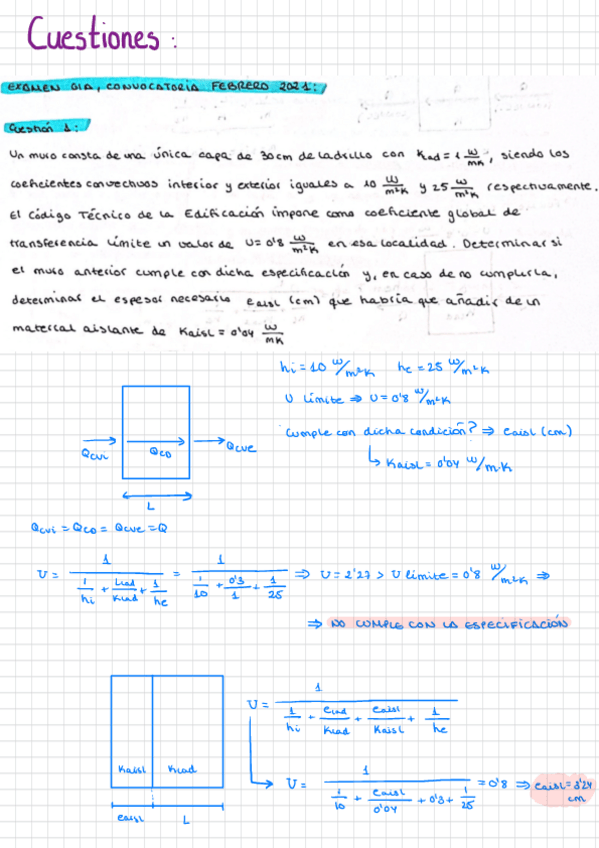 Cuestiones:
EXAMEN GIA, CONVOCATORIA FEBRERO 2021:
Cuestión 1:
Un muro consta de una única capa de 30cm de ladrillo con Klad = 1 W/mK, siendo los
coeficientes convectivos interior y exterior iguales a 10 W/m²K y 25 W/m²K respectivamente.
El Código Técnico de la Edificación impone como coeficiente global de
transferencia límite un valor de U = 0'8 W/m²K en esa localidad. Determinar si
el muro anterior cumple con dicha especificación y, en caso de no cumplirla,
determinar el espesor necesario eaisl (cm) que habría que añadir de un
material aislante de Kaisl = 0'04 W/mK
hi = 10 W/m²K he = 25 W/m²K
U límite ⇒ U = 0'8 W/m²K
¿cumple con dicha condición? ⇒ eaisl (cm)
↳ Kaisl = 0'04 W/m·K
Qcvi Qco Qcve
L
Qcvi = Qco = Qcve = Q
U = 1/(1/hi + Llad/Klad + 1/he) = 1/(1/10 + 0'3/1 + 1/25) ⇒ U = 2'27 > U límite = 0'8 W/m²K ⇒
⇒ NO CUMPLE CON LA ESPECIFICACIÓN
U = 1/(1/hi + elad/Klad + eaisl/Kaisl + 1/he)
Kaisl Klad
U = 1/(1/10 + eaisl/0'04 + 0'3 + 1/25) = 0'8 ⇒ eaisl = 3'24 cm
eaisl L